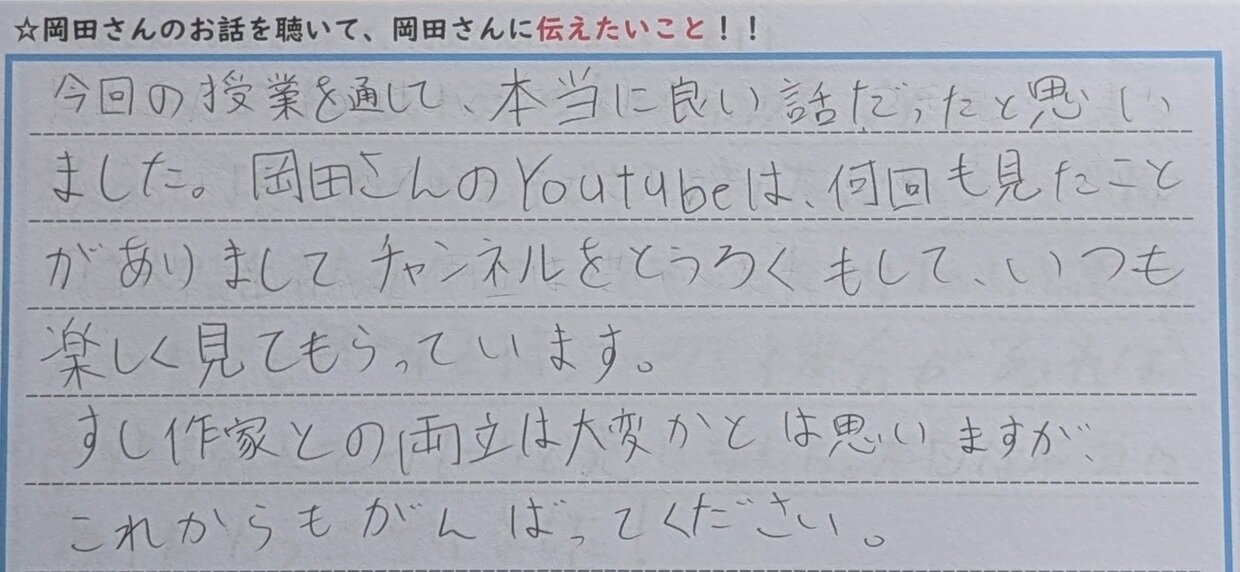 ☆岡田さんのお話を聴いて、岡田さんに伝えたいこと！！
今回の授業を通して、本当に良い話だったと思い
ました。岡田さんのYoutubeは、何回も見たこと
がありましてチャンネルをとうろくもして、いつも
楽しく見てもらっています。
すし作家との両立は大変かとは思いますが、
これからもがんばってください。